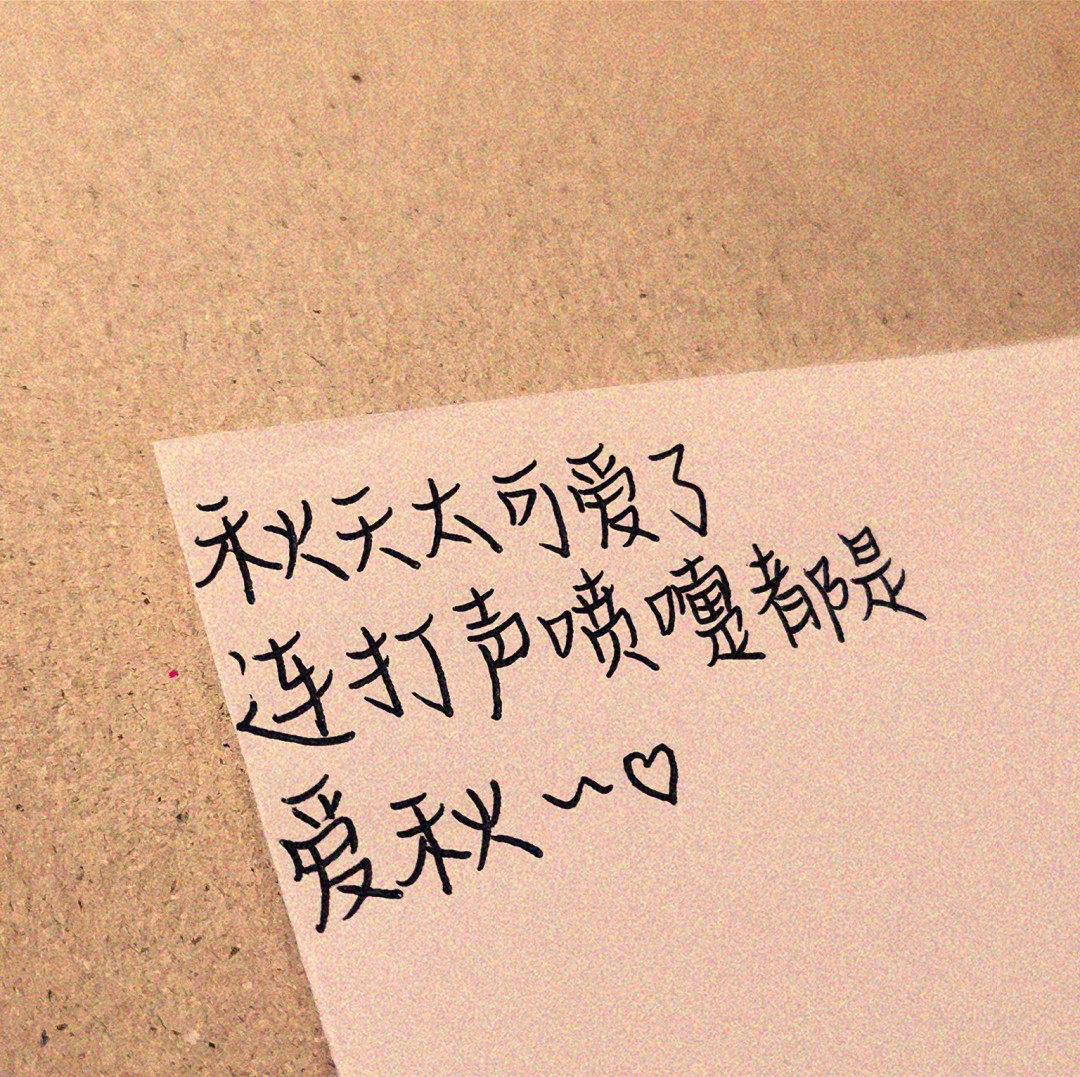 秋天太可爱了
连打声喷嚏都是
爱秋~♡